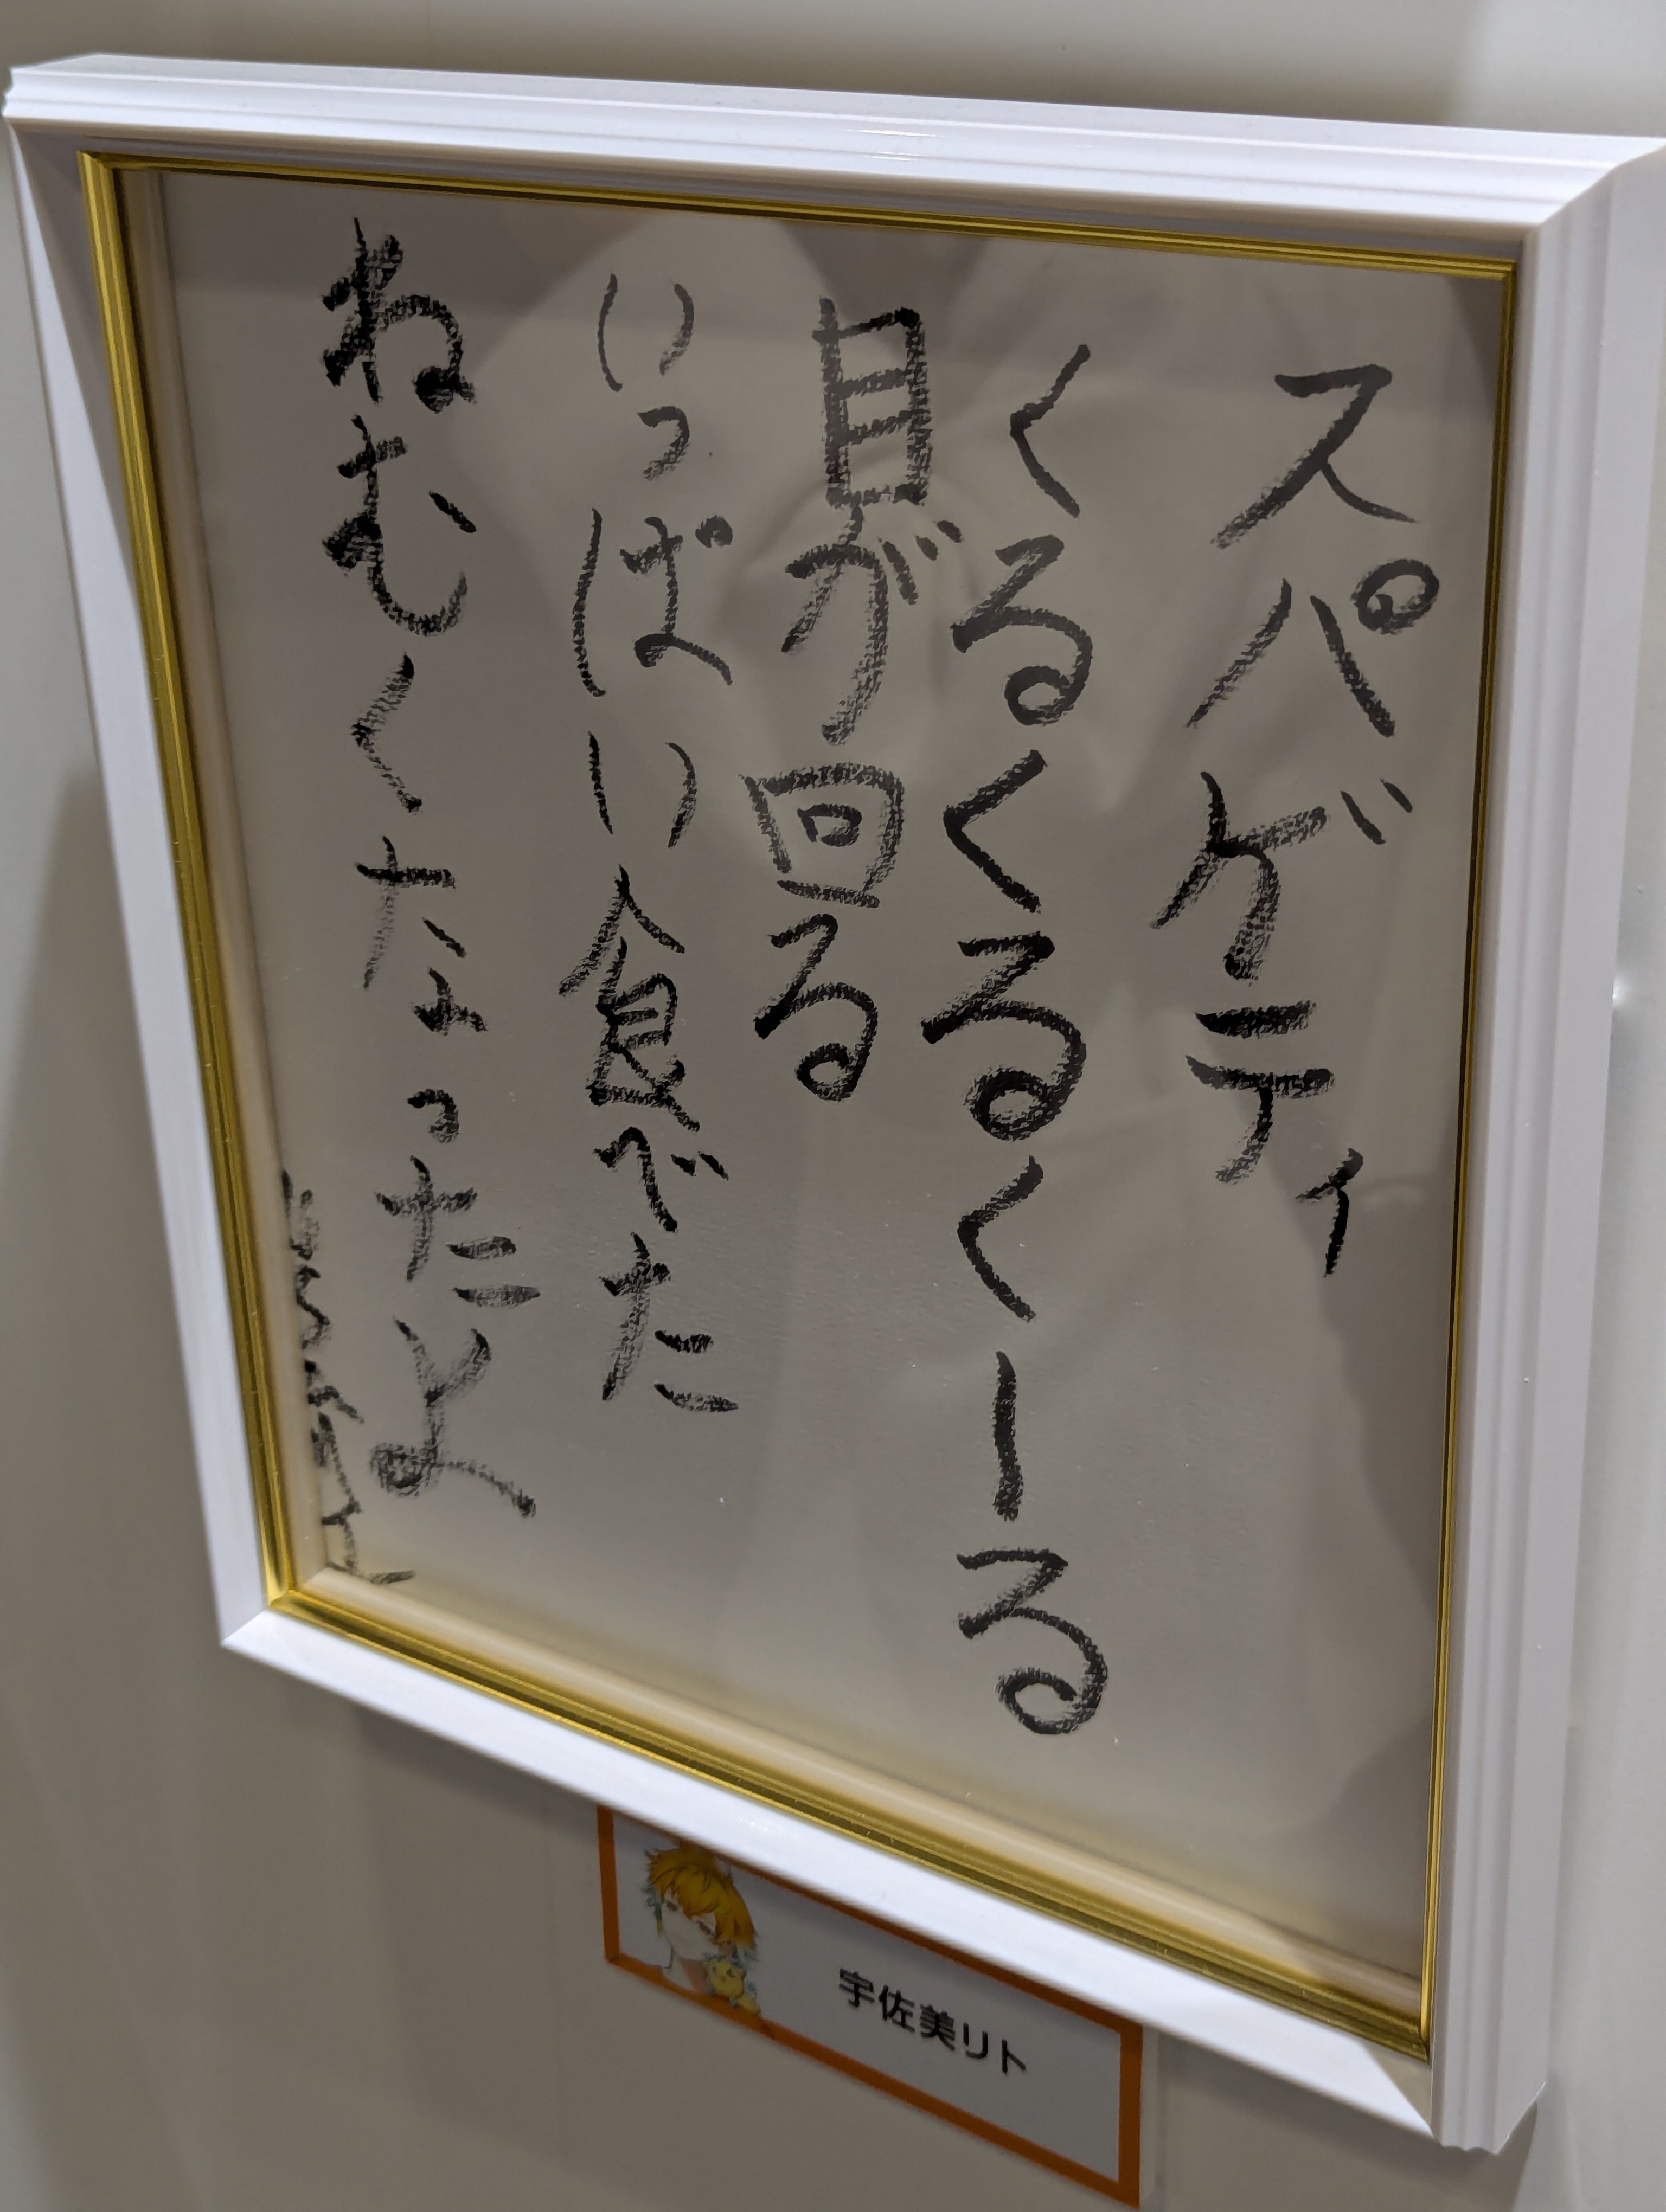 スパゲティ
くるくるくーる
目が回る
いっぱい食べた
ねむくなったよ
宇佐美リト